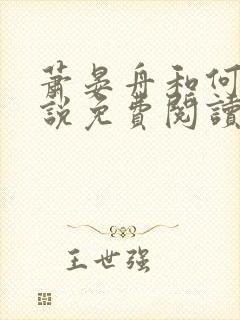 萧晏舟和何
說免費閱讀
王世强